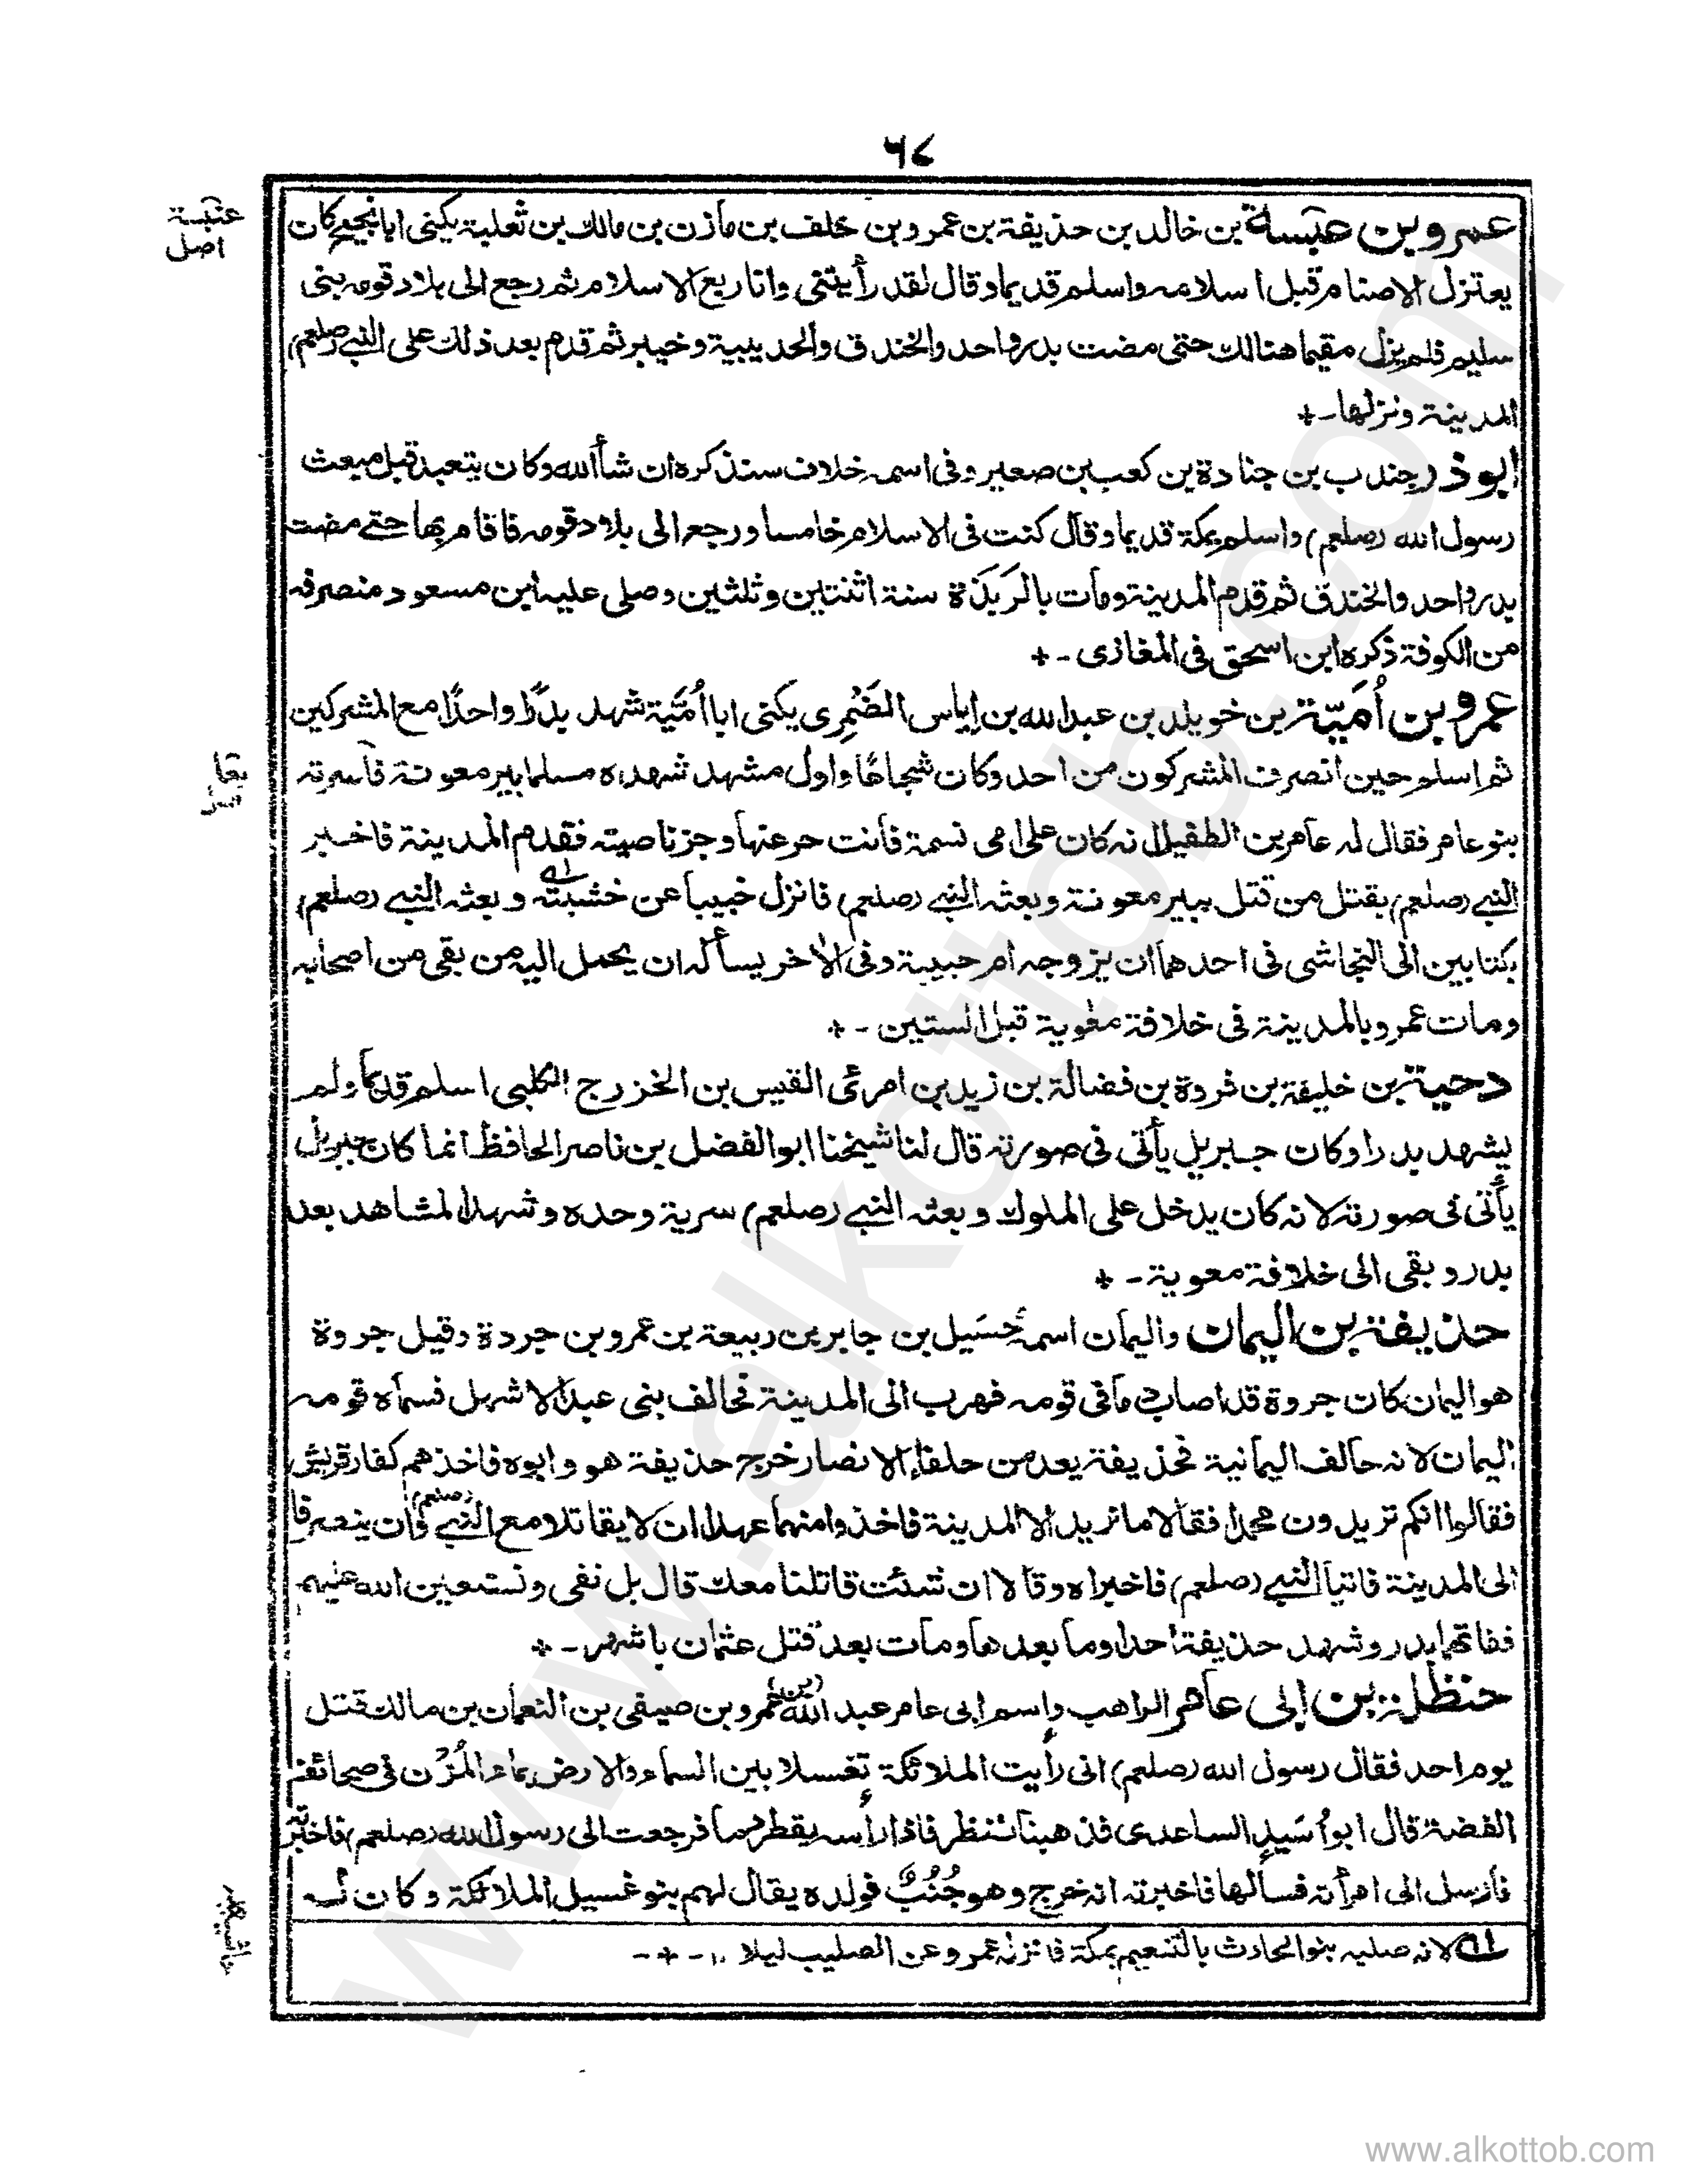 ٦٧
عنبسة
اصل
عمرو بن عبسة بن خالد بن حذيفة بن عمرو بن خلف بن مازن بن مالك بن ثعلبة يكنى ابا نجيح كان
يعتزل الاصنام قبل اسلامه واسلم قديما وقال لقد رأيتنى وانا ربع الاسلام ثم رجع الى بلاد قومه بنى
سليم فلم يزل مقيما هنالك حتى مضت بدر واحد والخندق والحديبية وخيبر ثم قدم بعد ذلك على النبى (صلعم)
المدينة ونزلها - +
ابو ذر جندب بن جنادة بن كعب بن صعير وفى اسمه خلاف سنذكره ان شأالله وكان يتعبد قبل مبعث
رسول الله (صلعم) واسلم بمكة قديما وقال كنت فى الاسلام خامسا ورجع الى بلاد قومه فاقام بها حتے مضت
بدر واحد والخندق ثم قدم المدينة ومات بالرَبَذَة سنة اثنتين وثلثين وصلى عليه ابن مسعود منصرفه
من الكوفة ذكره ابن اسحق فى المغازى - +
عمرو بن اُمَيّة بن خويلد بن عبد الله بن إياس الضَمْرِى يكنى ابا اُمَيّة شهد بدرًا واحدًا مع المشركين
ثم اسلم حين انصرف المشركون من احد وكان شجاعًا واول مشهد شهده مسلما بير معونة فأسرته
بنو عامر فقال له عامر بن الطفيل انه كان على امى نسمة فأنت حر عنها وجز ناصيته فقدم المدينة فاخبر
النبے (صلعم) بقتل من قتل ببير معونة وبعثه النبے (صلعم) فانزل خبيبا عن خشبته وبعثه النبے (صلعم)
بكتابين الى النجاشى فى احدهما ان يزوجه ام حبيبة وفى الاخر يسأله ان يحمل اليه من بقى من اصحابه
ومات عمرو بالمدينة فى خلافة معوية قبل الستين - +
دحية بن خليفة بن فروة بن فضالة بن زيد بن امرئ القيس بن الخزرج الكلبى اسلم قديما ولم
يشهد بدرا وكان جبريل يأتى فى صورته قال لنا شيخنا ابو الفضل بن ناصر الحافظ انما كان جبريل
يأتى فى صورته لانه كان يدخل على الملوك وبعثه النبے (صلعم) سرية وحده وشهد المشاهد بعد
بدر وبقى الى خلافة معوية - +
حذيفة بن اليمان واليمان اسمه حُسَيل بن جابر بن ربيعة بن عمرو بن جردة وقيل جروة
هو اليمان كان جروة قد اصاب دما فى قومه فهرب الى المدينة فحالف بنى عبد الاشهل فسماه قومه
اليمان لانه حالف اليمانية فحذيفة يعد من حلفاء الانصار خرج حذيفة هو وابوه فاخذهم كفار قريش
فقالوا انكم تريدون محمدا فقالا ما نريد الا المدينة فاخذوا منهما عهدا ان لا يقاتلا مع النبے (صلعم) وان ينصرفا
الى المدينة فاتيا النبے (صلعم) فاخبراه وقالا ان شئت قاتلنا معك قال بل نفى ونستعين الله عليهم
ففاتهما بدر وشهد حذيفة احدا وما بعدها ومات بعد قتل عثمان باشهر - +
حنظلة بن ابى عامر الراهب واسم ابى عامر عبد الله (بن) عمرو بن صيفى بن النعمان بن مالك قتل
يوم احد فقال رسول الله (صلعم) انى رأيت الملائكة تغسله بين السماء والارض بماء المُزْن فى صحائف
الفضة قال ابو اُسَيد الساعدى فذهبنا ننظر فاذا رأسه يقطر دما فرجعت الى رسول الله (صلعم) فاخبرته
فأرسل الى امرأته فسألها فاخبرته انه خرج وهو جُنُبٌ فولده يقال لهم بنو غسيل الملائكة وكان لسه
(١) لانه صلبه بنو الحارث بالتنعيم بمكة فانزله عمرو عن الصليب ليلا ١٠ - + -
www.alkottob.com
www.alkottob.com